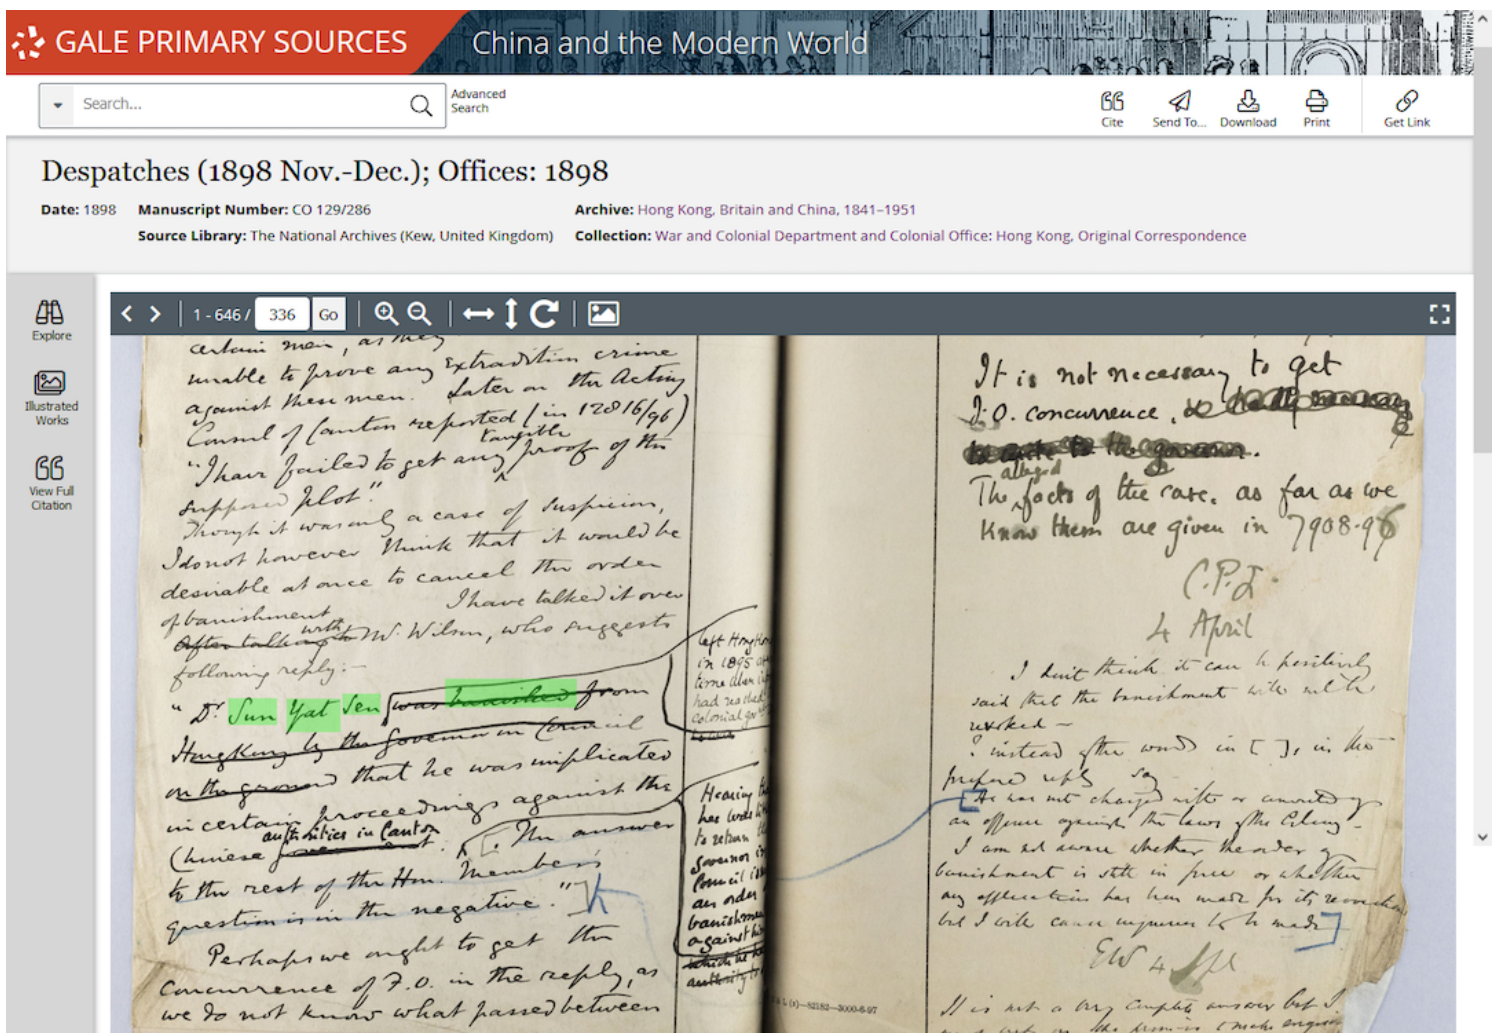 GALE PRIMARY SOURCES
China and the Modern World
Search...
Advanced
Search
Cite
Send To...
Download
Print
Get Link
Despatches (1898 Nov.-Dec.); Offices: 1898
Date: 1898 Manuscript Number: CO 129/286 Archive: Hong Kong, Britain and China, 1841–1951
Source Library: The National Archives (Kew, United Kingdom) Collection: War and Colonial Department and Colonial Office: Hong Kong, Original Correspondence
Explore
Illustrated
Works
View Full
Citation
1 - 646 / 336 Go
certain men, as they
unable to prove any extradition crime
against these men. Later on the Acting
Consul of Canton reported (in 12816/96)
"I have failed to get any tangible proof of the
supposed plot."
Though it was only a case of suspicion,
I do not however think that it would be
desirable at once to cancel the order
of banishment I have talked it over
After talking with Mr. Wilson, who suggests
following reply:—
"Dr Sun Yat Sen was banished from
Hong Kong by the Governor in Council
on the ground that he was implicated
in certain proceedings against the
Chinese authorities in Canton. The answer
to the rest of the Hon. Member's
question is in the negative."
Perhaps we ought to get the
concurrence of F.O. in the reply, as
we do not know what passed between
left Hong Kon
in 1895 at
time when
had reached
colonial gov
Hearing
has
to return
Governor in
Council
an order
banishme
against hi
which he h
authority
It is not necessary to get
F.O. concurrence,
The alleged facts of the case, as far as we
know them are given in 7908-96
4 April
I don't think it can be positively
said that the banishment will not be
revoked —
instead of the words in [ ], in the
proposed reply say
He was not charged with or convicted of
an offence against the laws of the Colony.
I am not aware whether the order of
banishment is still in force or whether
any application has been made for its revocation
but I will cause inquiries to be made
EW 4 Apl
It is not a very complete answer but I